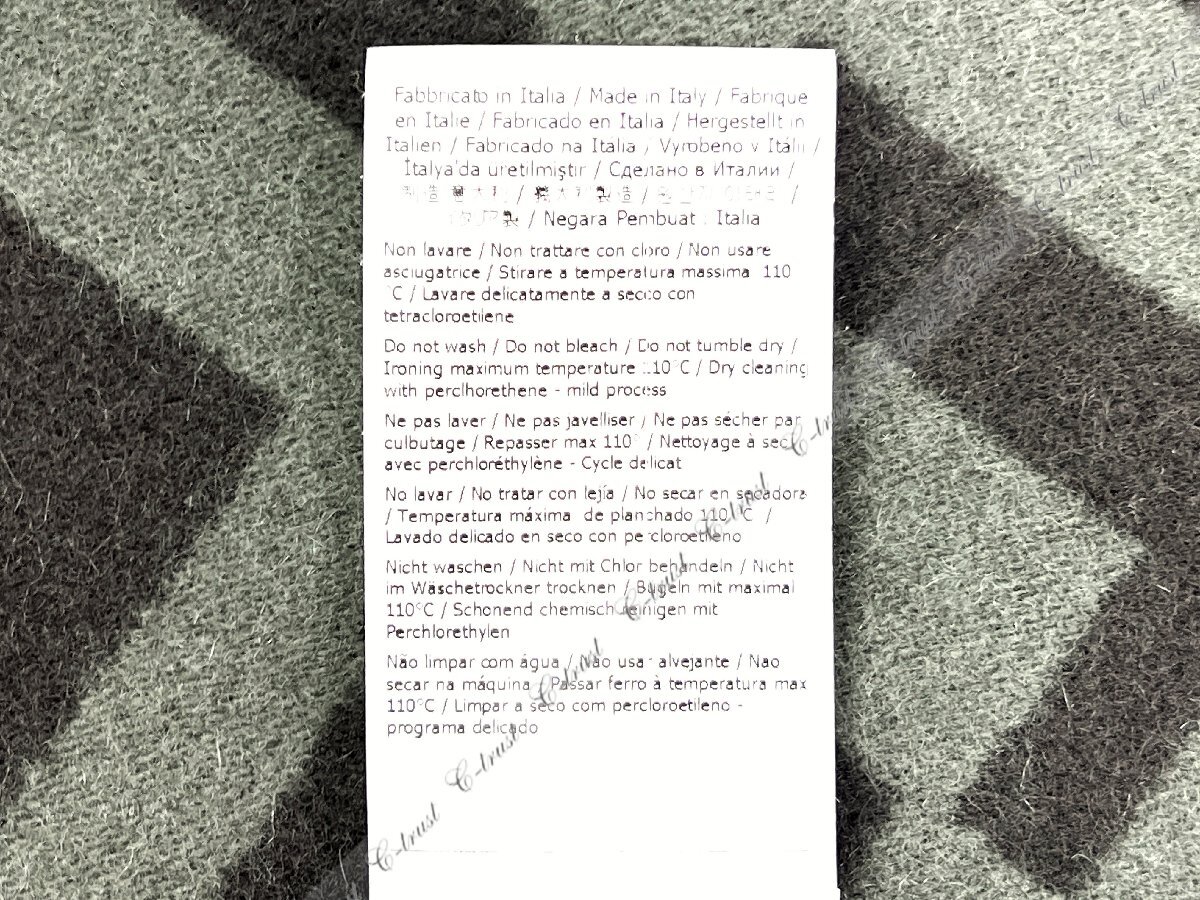 Fabbricato in Italia / Made in Italy / Fabrique
en Italie / Fabricado en Italia / Hergestellt in
Italien / Fabricado na Italia / Vyrobeno v Itálii /
İtalya'da uretilmiştir / Сделано в Италии /
製造 意大利 / 義大利製造 / 원산지 이태리 /
製 / Negara Pembuat : Italia
Non lavare / Non trattare con cloro / Non usare
asciugatrice / Stirare a temperatura massima 110
°C / Lavare delicatamente a secco con
tetracloroetilene
Do not wash / Do not bleach / Do not tumble dry /
Ironing maximum temperature 110°C / Dry cleaning
with perclhorethene - mild process
Ne pas laver / Ne pas javelliser / Ne pas sécher par
culbutage / Repasser max 110° / Nettoyage à sec
avec perchloréthylène - Cycle delicat
No lavar / No tratar con lejía / No secar en secadora
/ Temperatura máxima de planchado 110°C /
Lavado delicado en seco con percloroetileno
Nicht waschen / Nicht mit Chlor behandeln / Nicht
im Wäschetrockner trocknen / Bügeln mit maximal
110°C / Schonend chemisch reinigen mit
Perchlorethylen
Não limpar com água / Não usar alvejante / Nao
secar na máquina / Passar ferro à temperatura max
110°C / Limpar a seco com percloroetileno -
programa delicado
C-trust
C-trust
C-trust
C-trust
C-trust
C-trust
C-trust
C-trust